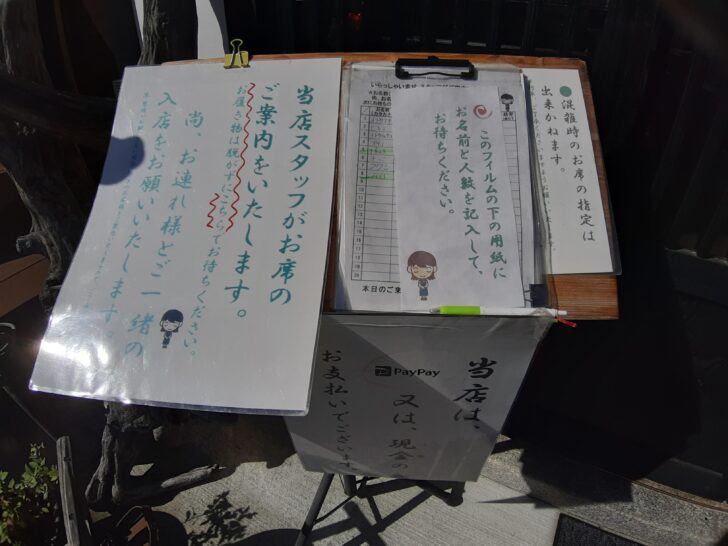 当店スタッフがお席の
ご案内をいたします。
お履き物は脱がずにこちらでお待ちください。
尚、お連れ様とご一緒の
入店をお願いいたします。
いらっしゃいませ
このフイルムの下の用紙に
お名前と人数を記入して、
お待ちください。
本日のご来
●混雑時のお席の指定は
出来かねます。
当店は、
PayPay
又は、現金の
お支払いでございます。